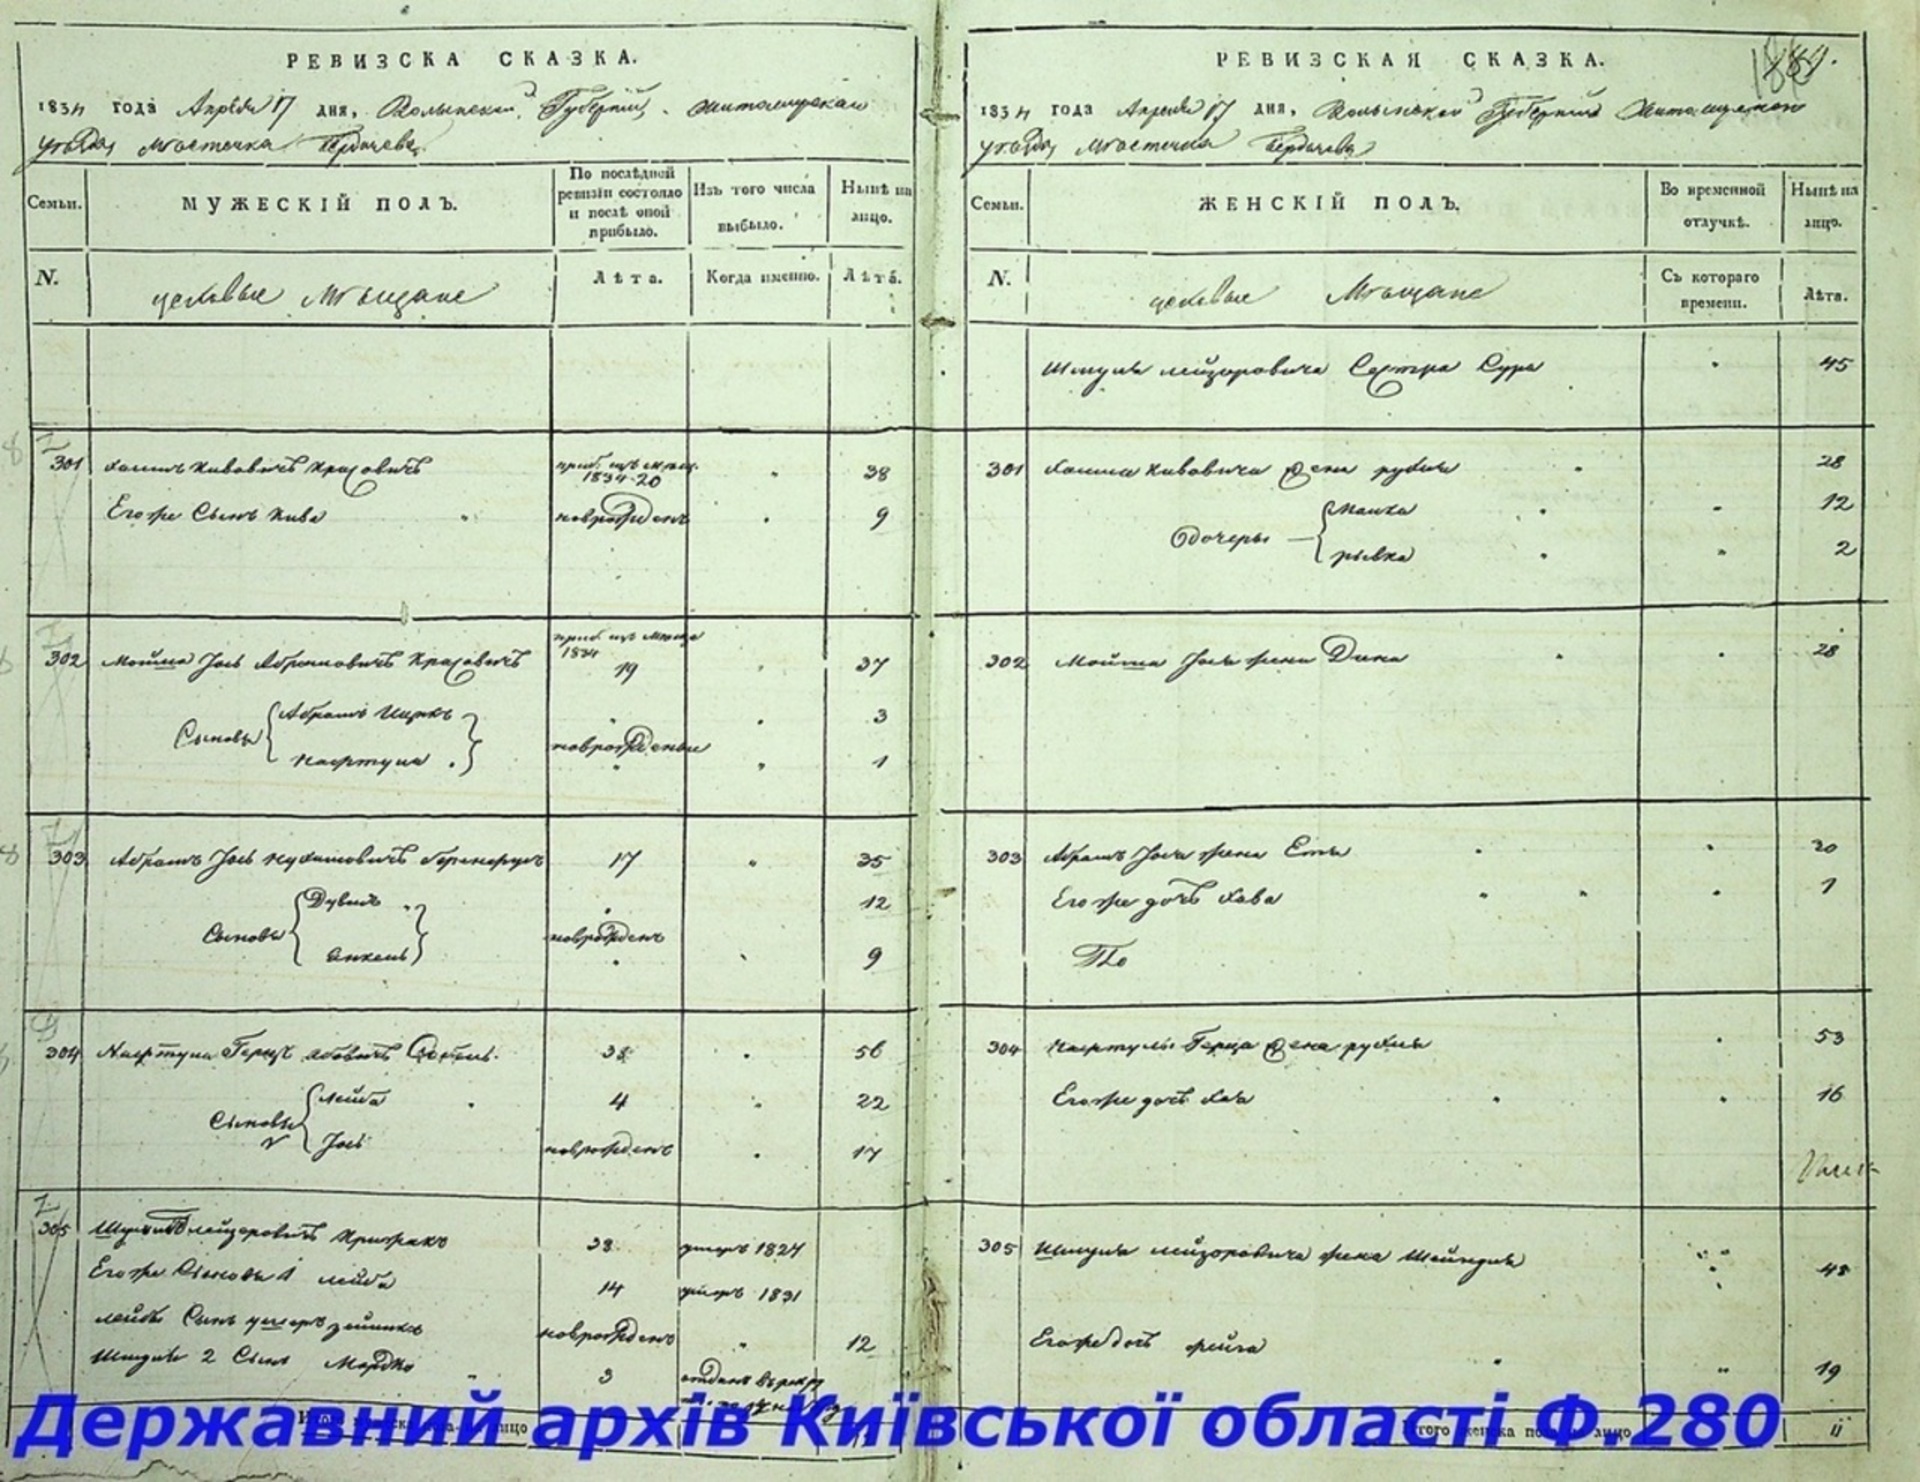 РЕВИЗСКА СКАЗКА.
1834 года Апреля 17 дня, Волынской Губернии, Житомирскаго
уезда, местечка Бердичева
Семьи. МУЖЕСКІЙ ПОЛЪ. По послѣдней ревизіи состояло и послѣ оной прибыло. Изъ того числа выбыло. Нынѣ на лицо.
N. цеховые Мещане Лѣта. Когда именно. Лѣта.
301 Хаимъ Кивовичъ 1834 20 38
Егоже Сынъ Кива новрожденъ 9
302 Мошка Іось Абрамовичъ 1834 19 37
Сыновья Абрамъ новрожденые 3
Нафтула 1
303 Абрамъ Іось 17 35
Сыновья 12
новрожденъ
9
304 Нафтула Герцъ 38 56
Сыновья Лейба 4 22
Іось новрожденъ 17
305 Лейзоровичъ 38 умеръ 1824
Егоже Сыновья 1 Лейба 14 умеръ 1831
Лейбы Сынъ новрожденъ 12
Шмуля 2 Сынъ Мордко 3
РЕВИЗСКАЯ СКАЗКА.
1834 года Апреля 17 дня, Волынской Губернии Житомирскои
уезда, местечка Бердичева
Семьи. ЖЕНСКІЙ ПОЛЪ. Во временной отлучкѣ. Нынѣ на лицо.
N. цеховые Мещане Съ котораго времени. Лѣта.
Шмуля Лейзоровича Сестра Сура 45
301 Хаима Кивовича жена рухля 28
Дочеры Малка 12
рывка 2
302 Мошка Іося жена Дина 28
303 Абрамъ Іося жена 30
Егоже дочь Хава 1
304 Нафтулы Герца жена рухля 53
Егоже дочь Хая 16
305 Шмуля Лейзоровича жена Шейндля 48
Егоже дочь фейга 19
Итого женска пола на лицо 11
Державний архів Київської області Ф.280